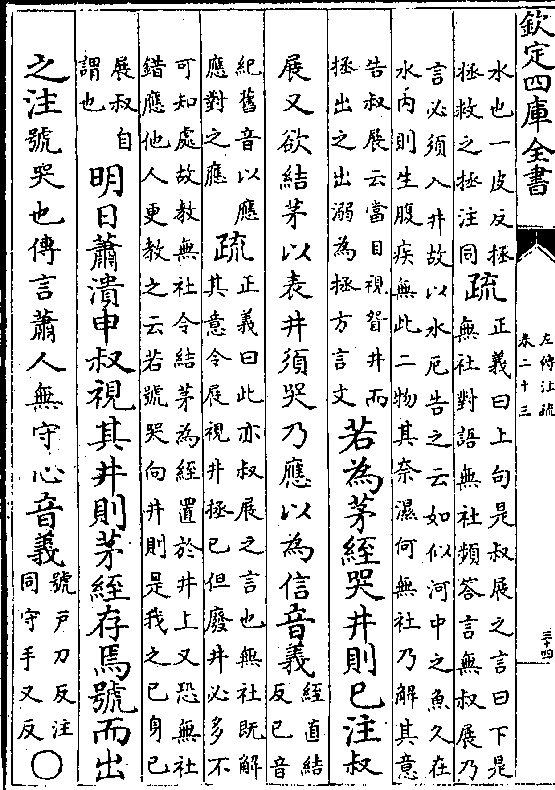 欽定四庫全書
左傳注疏
卷二十三
三十四
水也一皮反拯
拯救之拯注同
疏
正義曰上句是叔展之言曰下是
無社對語無社頻答言無叔展乃
言必須入井故以水厄告之云如似河中之魚久在
水內則生腹疾無此二物其奈濕何無社乃解其意
告叔展云當目視眢井而
拯出之出溺為拯方言文
若為茅絰哭井則已注叔
展又欲結茅以表井須哭乃應以為信音義
絰直結
反已音
紀舊音以應
應對之應
疏
正義曰此亦叔展之言也無社既解
其意令展視井拯已但廢井必多不
可知處故教無社令結茅為絰置於井上又恐無社
錯應他人更教之云若號哭向井則是我之已身已
展叔自
謂也
明日蕭潰申叔視其井則茅絰存焉號而出
之注號哭也傳言蕭人無守心音義
號戶刀反注
同守手又反
○